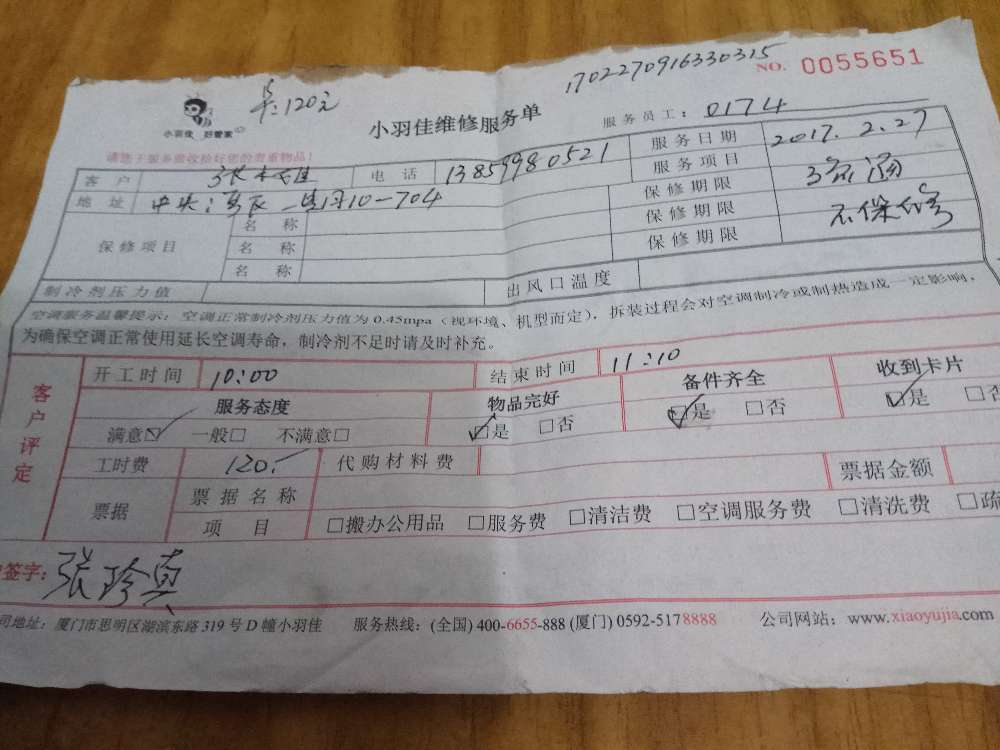 170227091633 0315
NO. 0055651
卡:120元
小羽佳 好管家
小羽佳维修服务单
服务员工: 0174
请您于服务前收拾好您的贵重物品!
客户 电话 13859980521 服务日期 2017.2.27
地址 10-704 服务项目
保修项目 名称 保修期限 不保修
名称 保修期限
名称 保修期限
制冷剂压力值 出风口温度
空调服务温馨提示:空调正常制冷剂压力值为0.45mpa(视环境、机型而定),拆装过程会对空调制冷或制热造成一定影响,
为确保空调正常使用延长空调寿命,制冷剂不足时请及时补充。
客户评定
开工时间 10:00 结束时间 11:10
服务态度 物品完好 备件齐全 收到卡片
满意☑ 一般□ 不满意□ ☑是 □否 ☑是 □否 ☑是 □否
工时费 120.- 代购材料费 票据金额
票据 票据名称
项目 □搬办公用品 □服务费 □清洁费 □空调服务费 □清洗费 □疏
签字: 张珍真
司地址:厦门市思明区湖滨东路319号D幢小羽佳 服务热线:(全国)400-6655-888(厦门)0592-5178888 公司网站:www.xiaoyujia.com